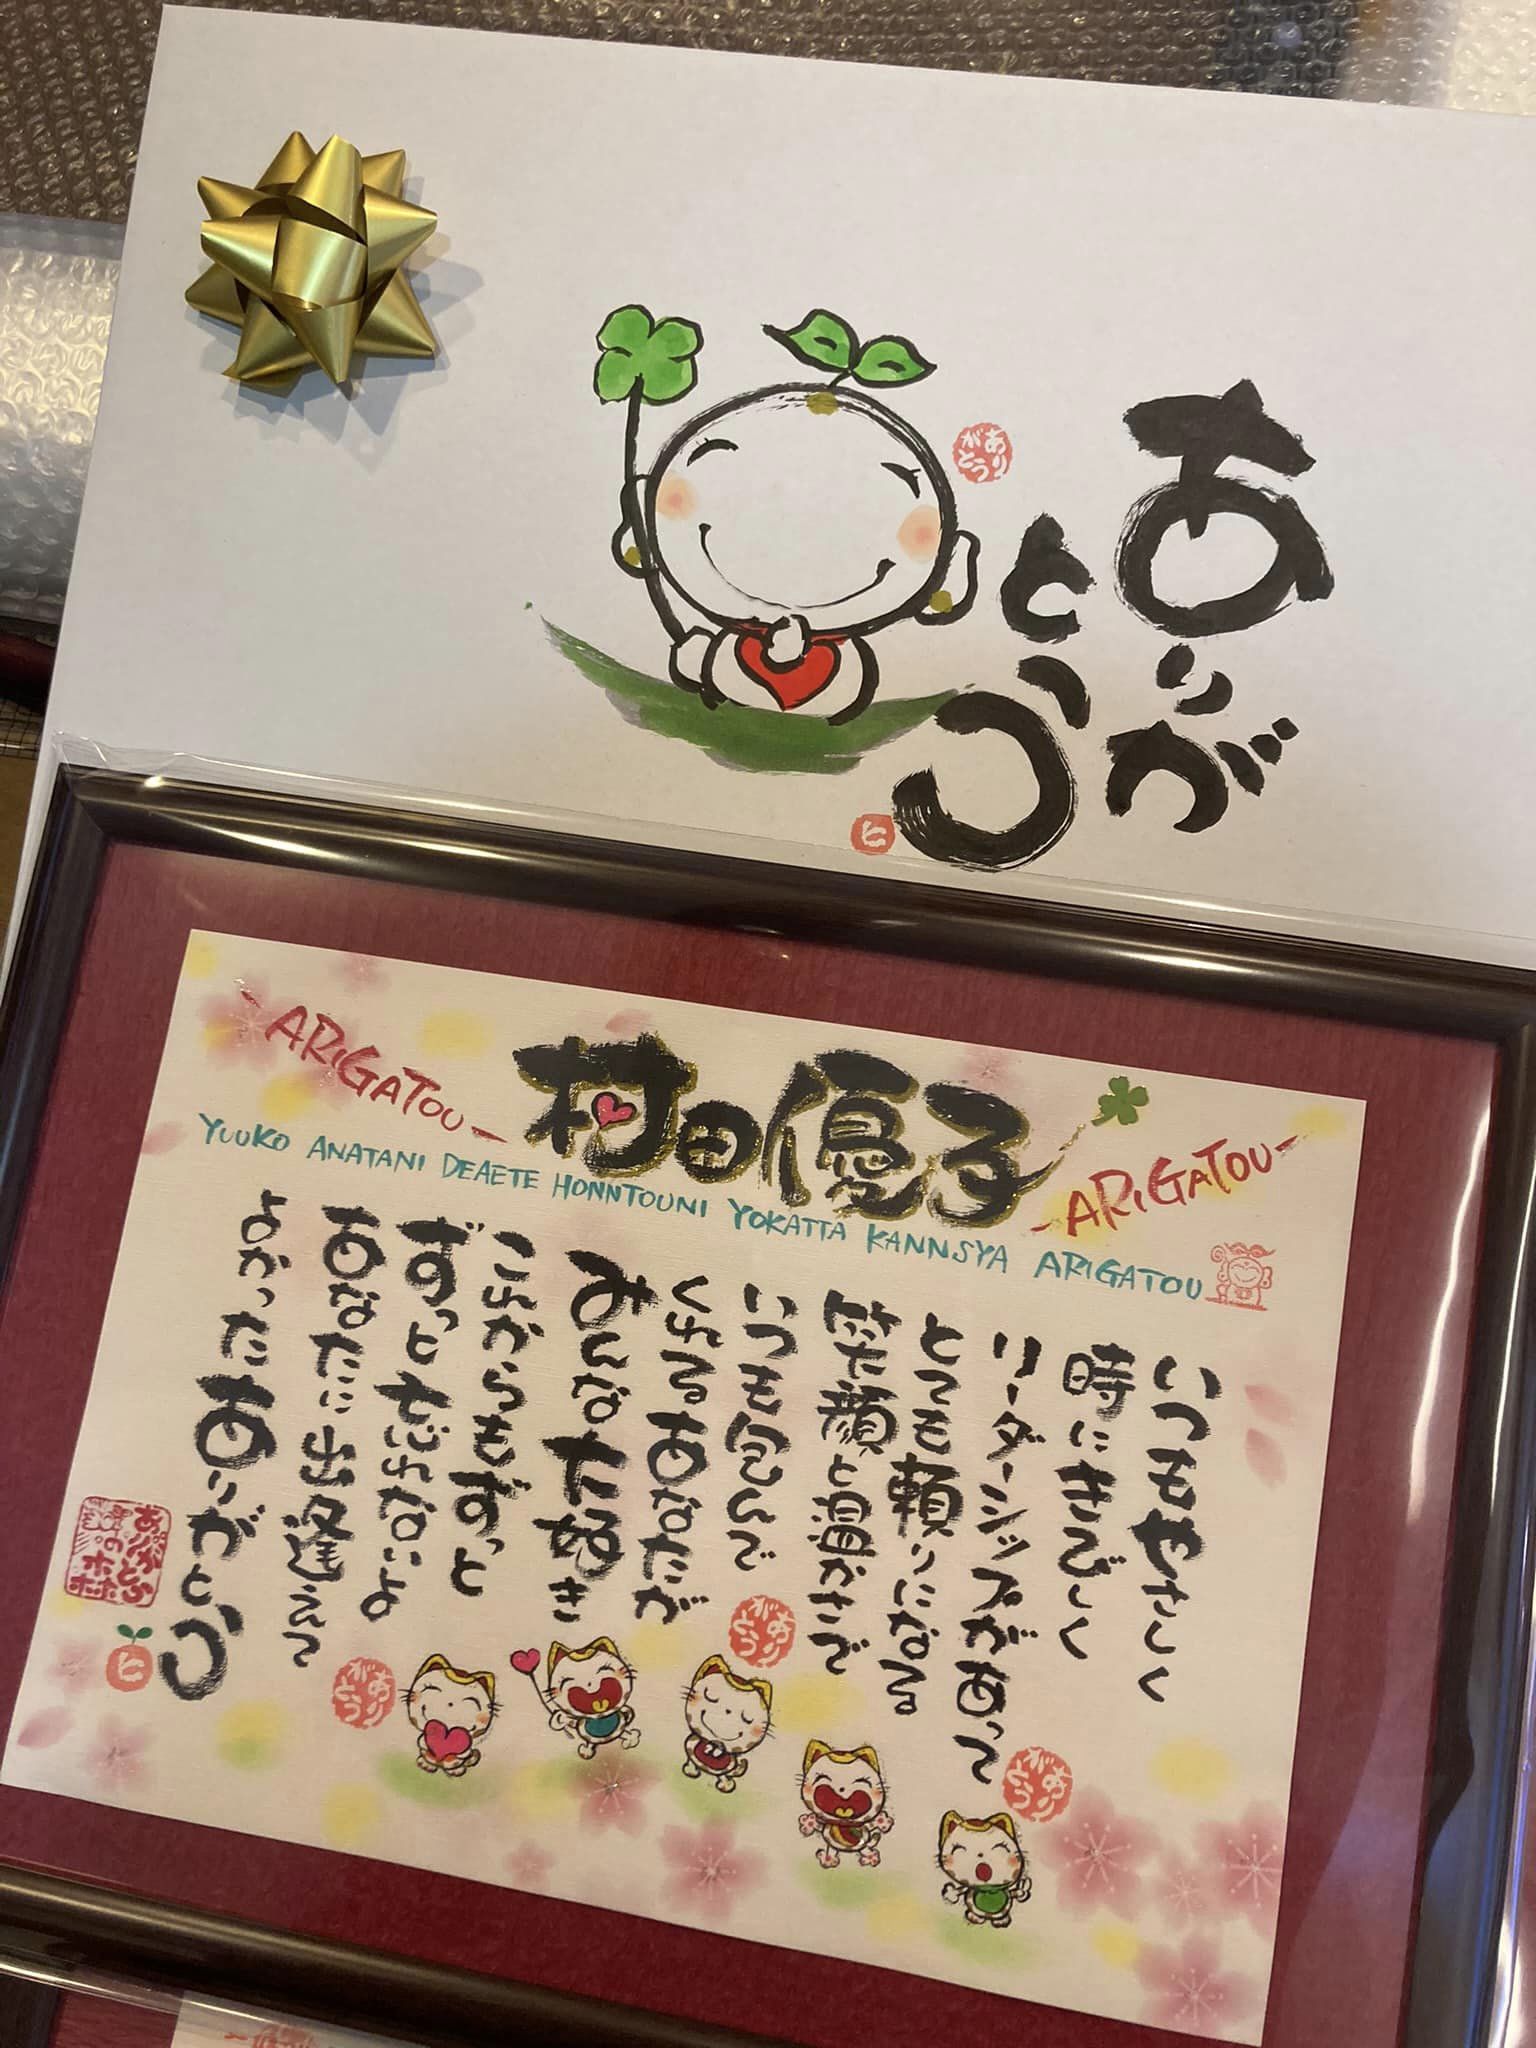 ありが
とう
ありがとう
ヒ
-ARIGATOU-
村田優子
-ARIGATOU-
YUUKO ANATANI DEAETE HONNTOUNI YOKATTA KANNSYA ARIGATOU
いつもやさしく
時にきびしく
リーダーシップがあって
とても頼りになる
笑顔と温かさで
いつも包んで
くれるあなたが
みんな大好き
これからもずっと
ずっと大じょうぶだよ
あなたに出逢えて
よかったありがとう
ありがとう
ありがとう
ありがとう
ヒ